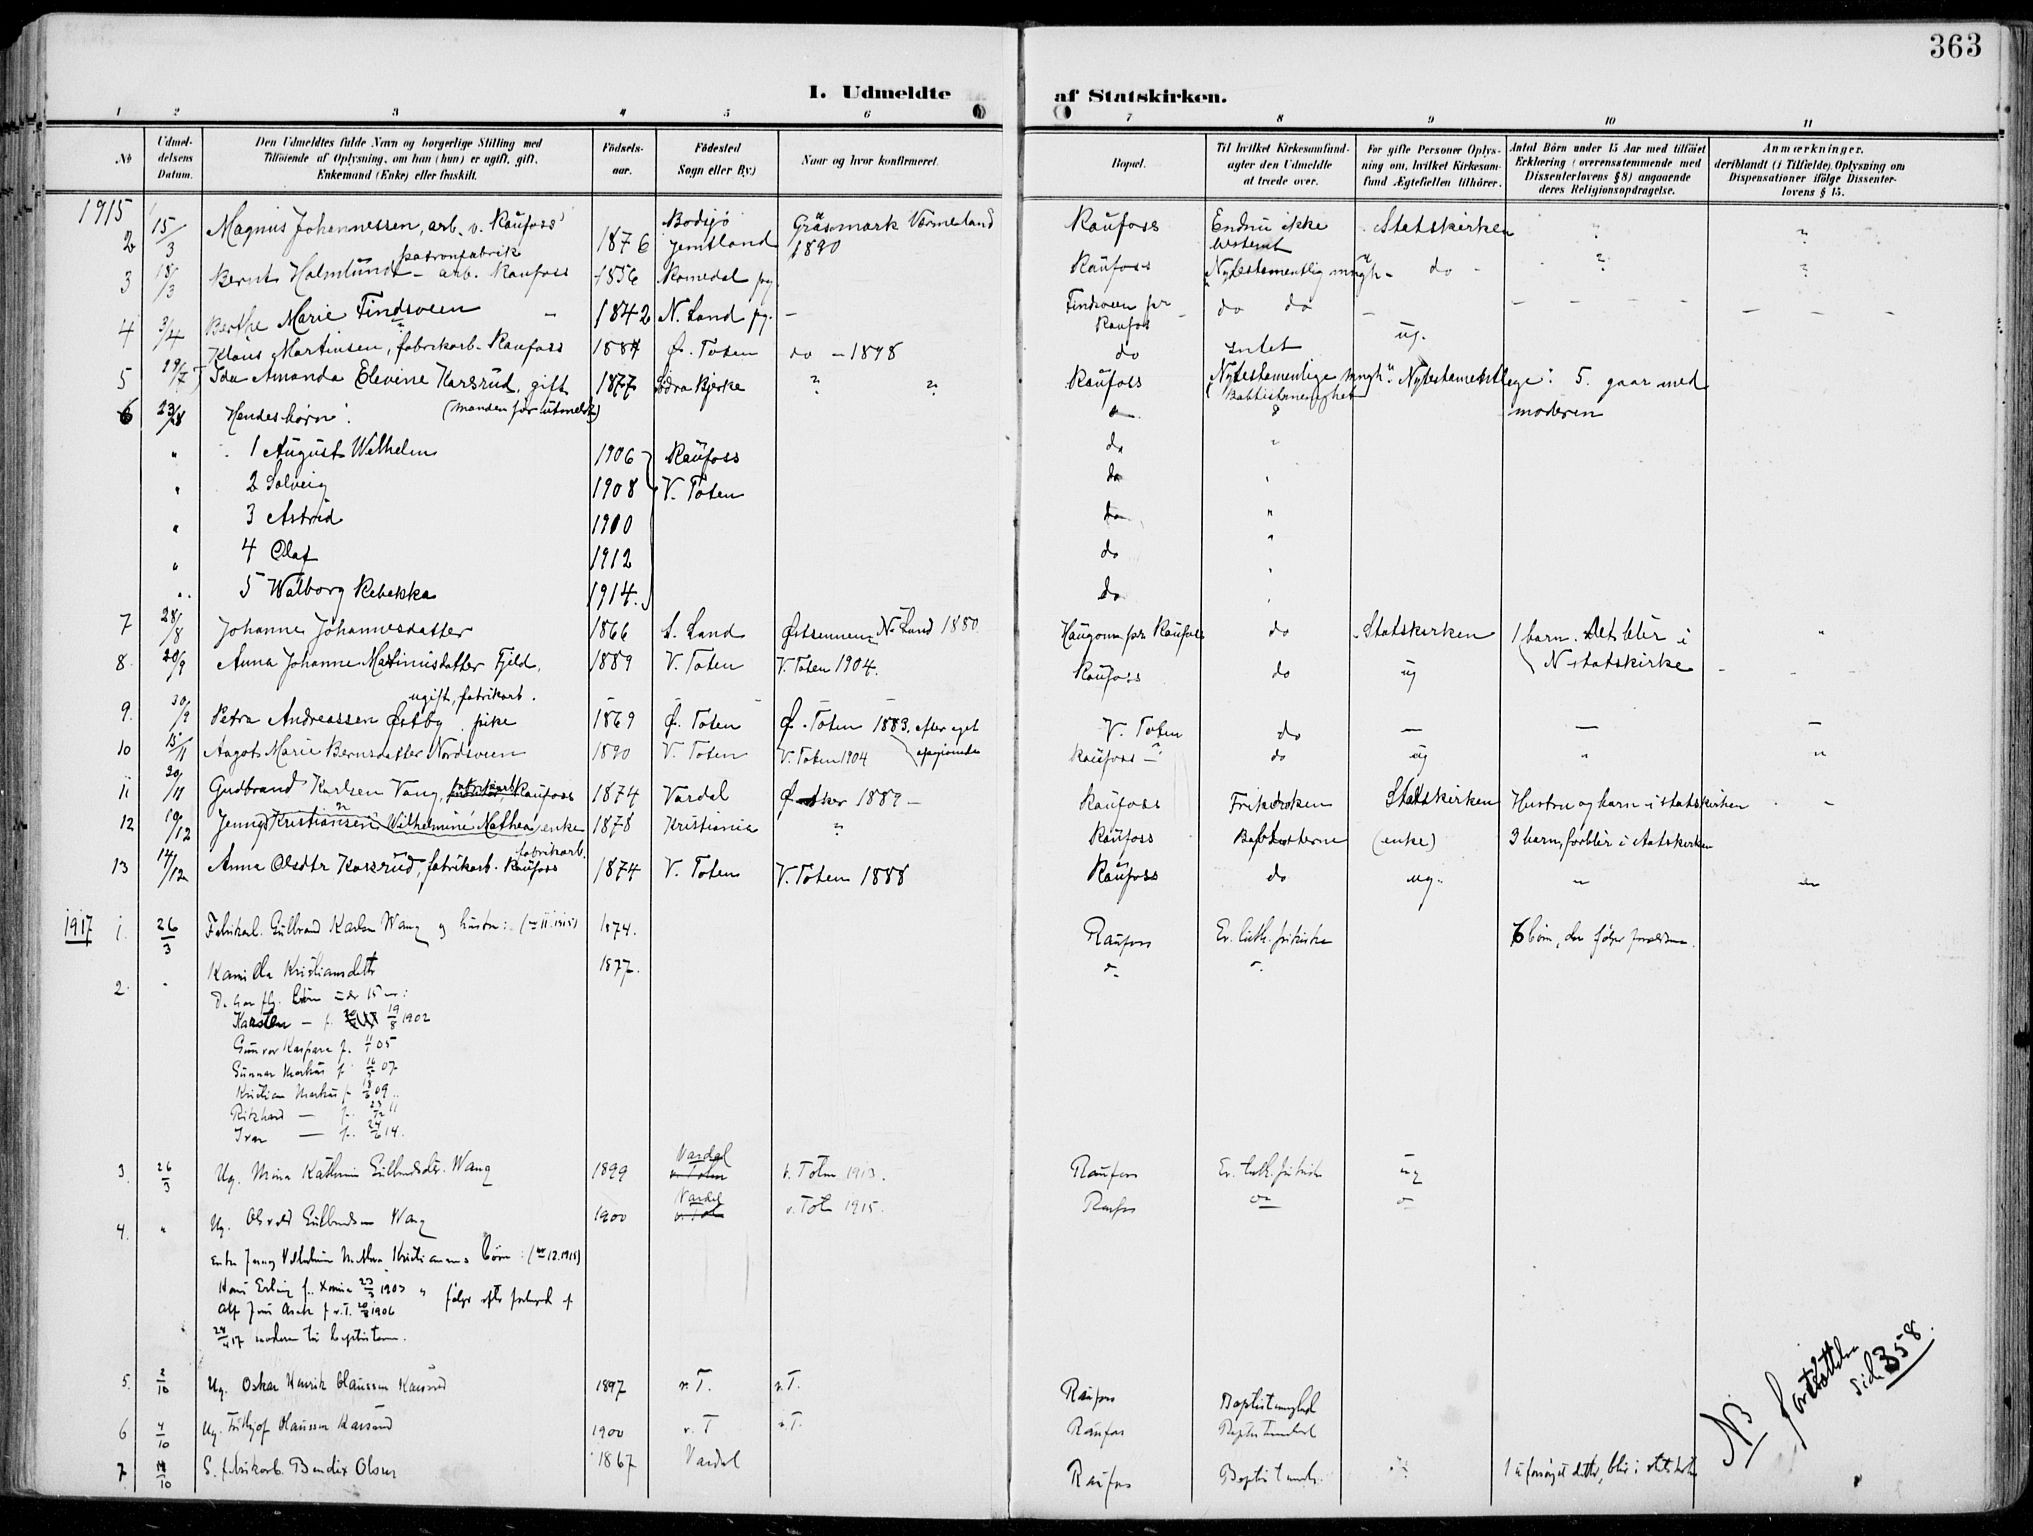 363
I. Udmeldte af Statskirken.
1 2 3 4 5 6 7 8 9 10 11
No
Udmeldelsens Datum.
Den Udmeldtes fulde Navn og borgerlige Stilling med
Tilföiende af Oplysning, om han (hun) er ugift, gift,
Enkemand (Enke) eller fraskilt.
Födselsaar.
Födested
Sogn eller By.)
Naar og hvor konfirmeret.
Bopæl.
Til hvilket Kirkesamfund
agter den Udmeldte
at træde over.
For gifte Personer Oplysning
om, hvilket Kirkesamfund
Ægtefællen tilhörer.
Antal Börn under 15 Aar med tilföiet
Erklæring (overensstemmende med
Dissenterlovens § 8) angaaende
deres Religionsopdragelse.
Anmærkninger.
deriblandt (i Tilfælde) Oplysning om
Dispensationer ifölge Dissenterlovens § 15.
1915
2 15/3 Magnus Johannessen, arb. v. Raufoss patronfabrik 1876 Bodsjö Jemtland Gräsmark Värmeland 1890 Raufoss Endnu ikke bestemt Statskirken " "
3 18/3 Bernt Holmlund - arb. Raufoss 1856 Romedal pg Raufoss Nytestamentlig mngh - do - ? ?
4 3/4 Berthe Marie Findsveen 1842 N. Land pg. - Findsveen pr Raufos do do - -
Klaus Martinsen, fabrikarb. Raufoss 1884 Ø. Toten do - 1898 do intet ug.
5 29/7 Ida Amanda Elevine Karsrud, gift 1877 Södra Bjerke " " Raufoss Nytestamentlige mngh. Nytestamentlige 5. gaar med
6 23/8 Hendes börn: (manden för utmeldt) (Babtistmenighet) moderen
" 1 August Wilhelm 1906 Raufoss do "
" 2 Solveig 1908 V. Toten do "
" 3 Astrid 1910 do "
" 4 Olaf 1912 do "
" 5 Walborg Rebekka 1914. do "
7 28/8 Johanne Johannesdatter 1866 S. Land Østsinnen N. Land 1880 Haugom pr Raufoss do Statskirken 1 barn. Det blir i
8 20/9 Anna Johanne Martiniusdatter Fjeld, ugift, fabrikarb. 1889 V. Toten V. Toten 1904. Raufoss do ug N statskirke
9. 30/9 Petra Andreassen Østby pike 1869 Ø. Toten Ø. Toten 1883, efter eget opgivende V. Toten do - - -
10 15/11 Aagot Marie Berntsdatter Nordsveen 1890 V. Toten V. Toten 1904 Raufoss do ug " "
11 20/11 Gudbrand Karlsen Vang, fabrikarb Raufoss 1874 Vardal 1889 - Raufoss Frikirken Statskirken Hustru og barn i statskirken "
12 10/12 Jenny Kristiansen Wilhelmine Mathea, enke fabrikarb. 1878 Kristiania " Raufoss Babtisterne (enke) 3 barn, forblir i statskirken
13 14/12 Anna Olsdtr Karsrud, fabrikarb. Raufoss 1874 V. Toten V. Toten 1888 Raufoss do ug. " "
1917 1. 26/3 Fabrikarb. Gulbrand Karlsen Wang og hustru: (no 11. 1915) 1874. Raufoss Ev. luth. frikirke 6 börn, der fölger forældrene.
2. " Kamilla Kristiansdatter 1877.
De har flg. börn under 15 aar:
Karsten - f. 19/8 1902
Gunvor Kaspara f. 05
Gunnar Markus f. 07
Kristian Markus f. 09
Rikhard - f. 11
Ivar - f. 14.
3. 26/3 Ug. Mina Kathrine Gulbrandsdtr. Wang 1899 Vardal v. Toten v. Toten 1913. Raufoss Ev. luth. frikirke ug
4. " Ug. Gulbrandsen Wang 1900 Vardal v. Tot v. Tot 1915. Raufoss
Enke Jenny Vilhelmine Mathea Kristiansens börn: (no 12. 1915)
Hans Erling f. Xania 23/3 1903
Alf f. v. T. 1906
17 moderen til baptisterne.
5. 2/10 Ug. Oskar Henrik Olaussen Karsrud 1897 v. T. v. T. Raufoss Baptistmenighed
6 4/10 Ug. Fritjof Olaussen Karsrud 1900 v. T v. T. Raufoss Baptistmenighed
7 /10 G. fabrikarb. Bendix Olsen 1867 Vardal Raufoss Baptist 1 uforsörget datter, blir i statskirken
NB fortsættelse side 358.